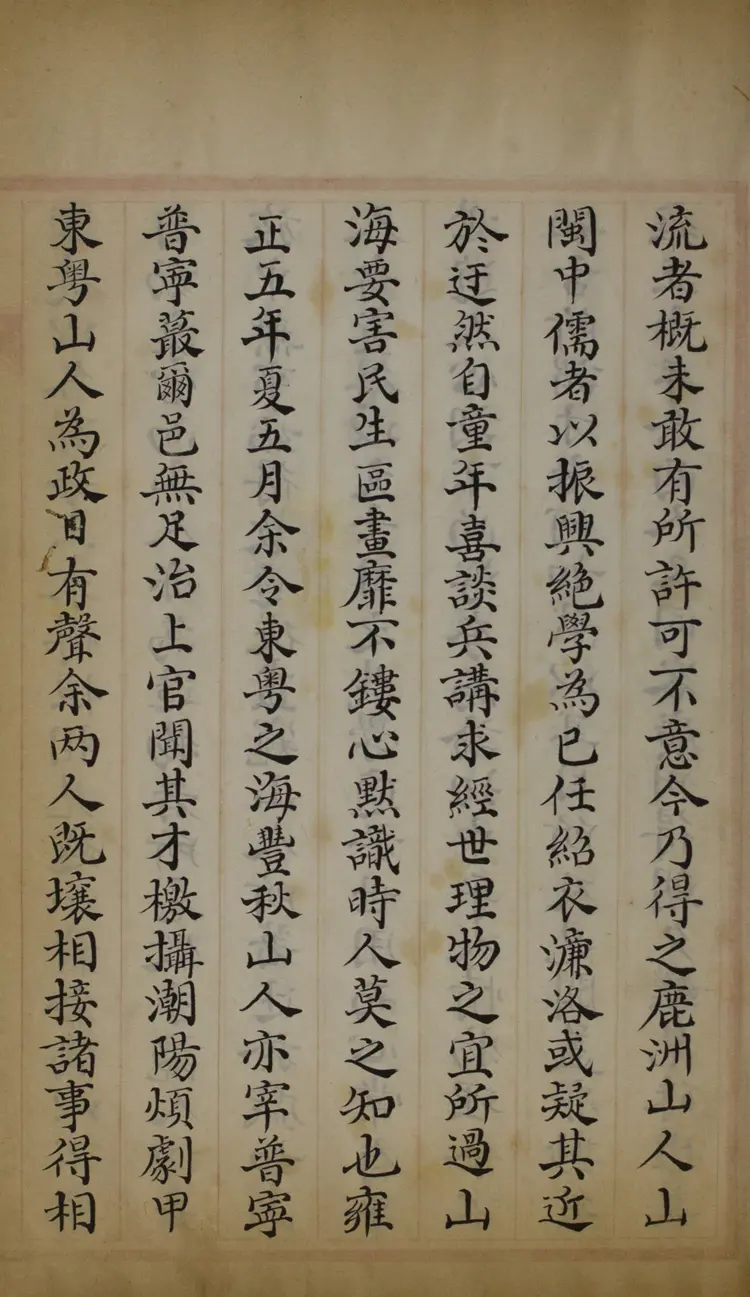 流者概未敢有所許可不意今乃得之鹿洲山人山
閩中儒者以振興絶學為已任紹衣濂洛或疑其近
於迂然自童年喜談兵講求經世理物之宜所過山
海要害民生區畫靡不鏤心黙識時人莫之知也雍
正五年夏五月余令東粤之海豐秋山人亦宰普寧
普寧蕞爾邑無足治上官聞其才檄攝潮陽煩劇甲
東粤山人為政日有聲余两人既壤相接諸事得相